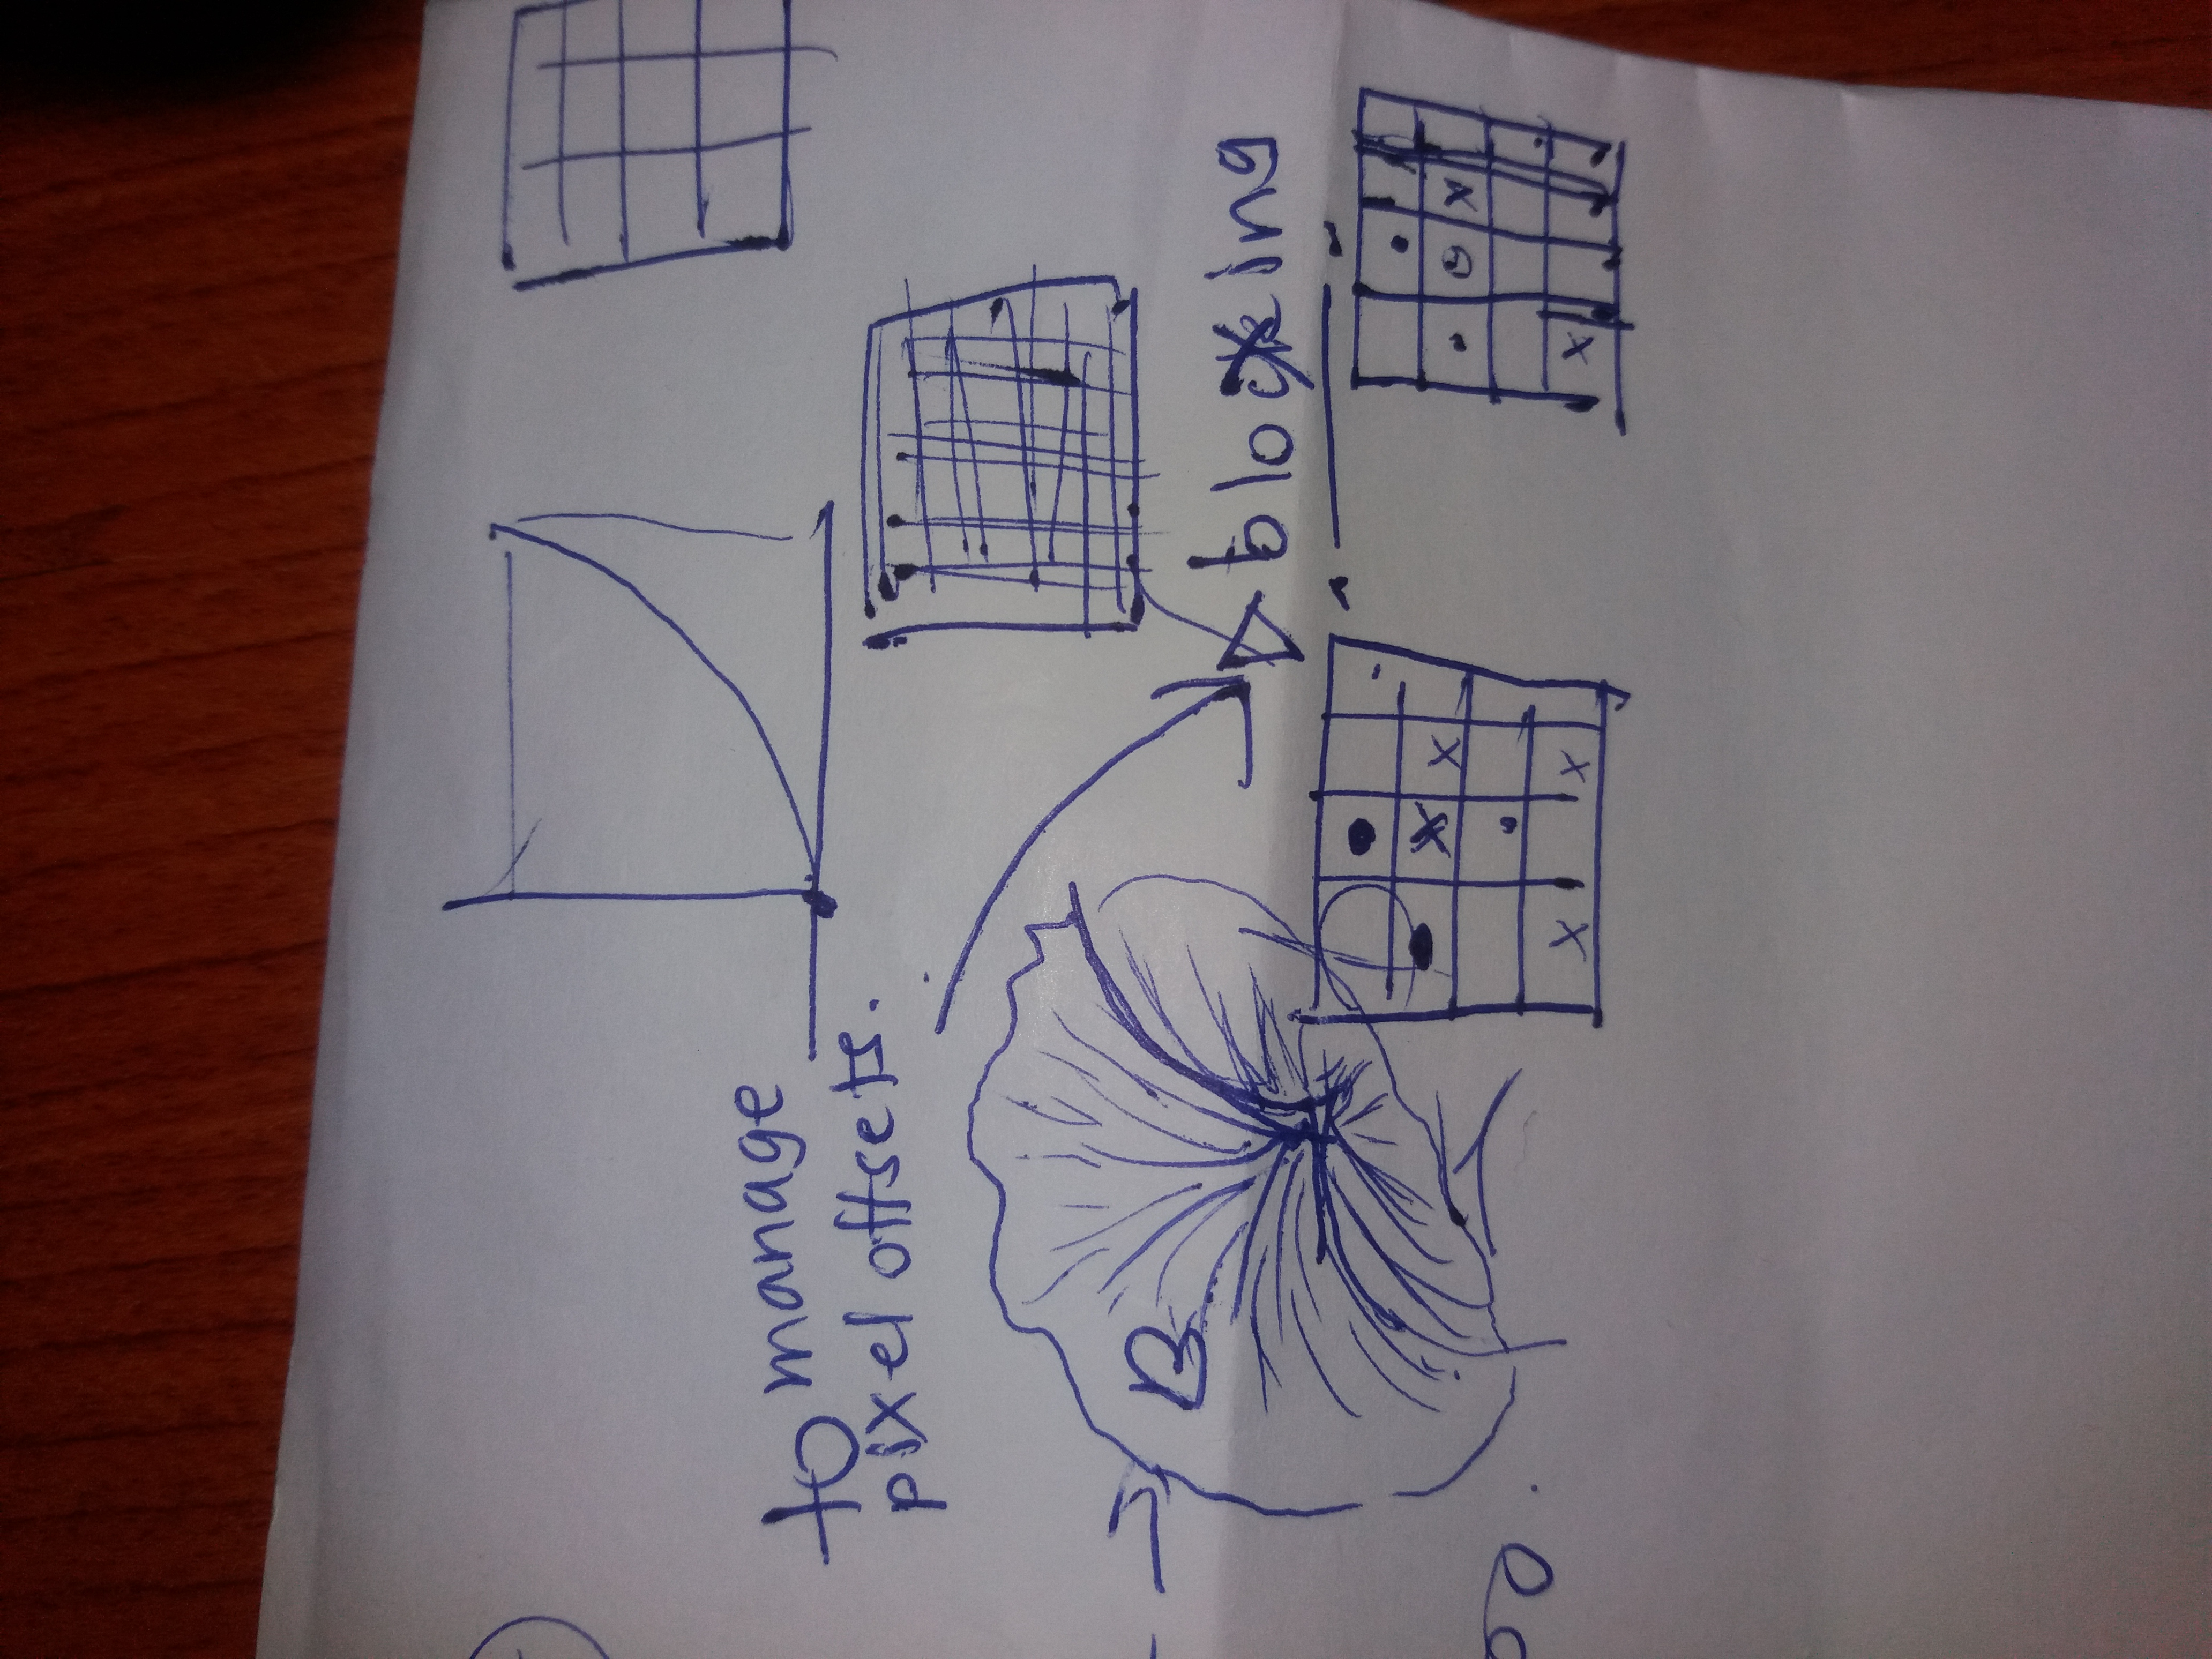 to manage
pixel offsets.
B
blocking